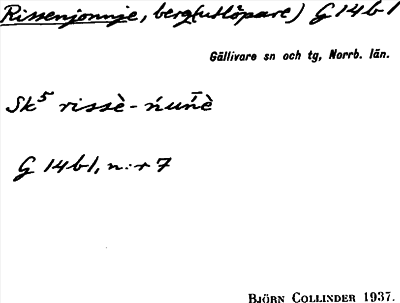 Rissenjonnje, berg(utlöpare) G 14 b 1
Gällivare sn och tg, Norrb. län.
Sk⁵ rissè-ńuńè
G 14 b 1, n:r 7
BJÖRN COLLINDER 1937.